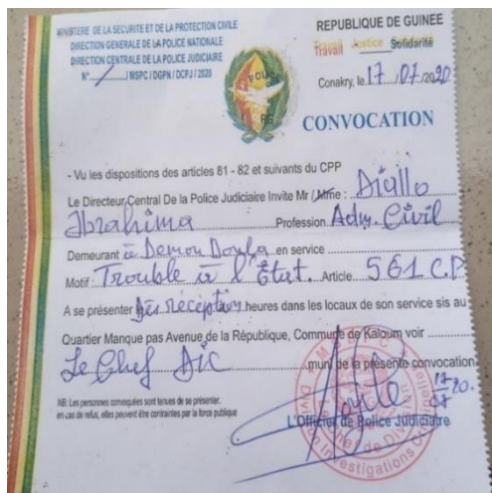 MINISTERE DE LA SECURITE ET DE LA PROTECTION CIVILE
DIRECTION GENERALE DE LA POLICE NATIONALE
DIRECTION CENTRALE DE LA POLICE JUDICIAIRE
N° / MSPC / DGPN / DCPJ / 2020
REPUBLIQUE DE GUINEE
Travail Justice Solidarité
Conakry, le 17 /07/2020
POLICE
RG
CONVOCATION
- Vu les dispositions des articles 81 - 82 et suivants du CPP
Le Directeur Central De la Police Judiciaire Invite Mr / Mme : Diallo
Ibrahima Profession Adm. Civil
Demeurant à Démoudoula en service
Motif Trouble à l'État. Article 561 C.P
A se présenter dès réception heures dans les locaux de son service sis au
Quartier Manque pas Avenue de la République, Commune de Kaloum voir
Le Chef DIC muni de la présente convocation
NB: Les personnes convoquées sont tenues de se présenter,
en cas de refus, elles peuvent être contraintes par la force publique
17
07 20.
L'Officier de Police Judiciaire